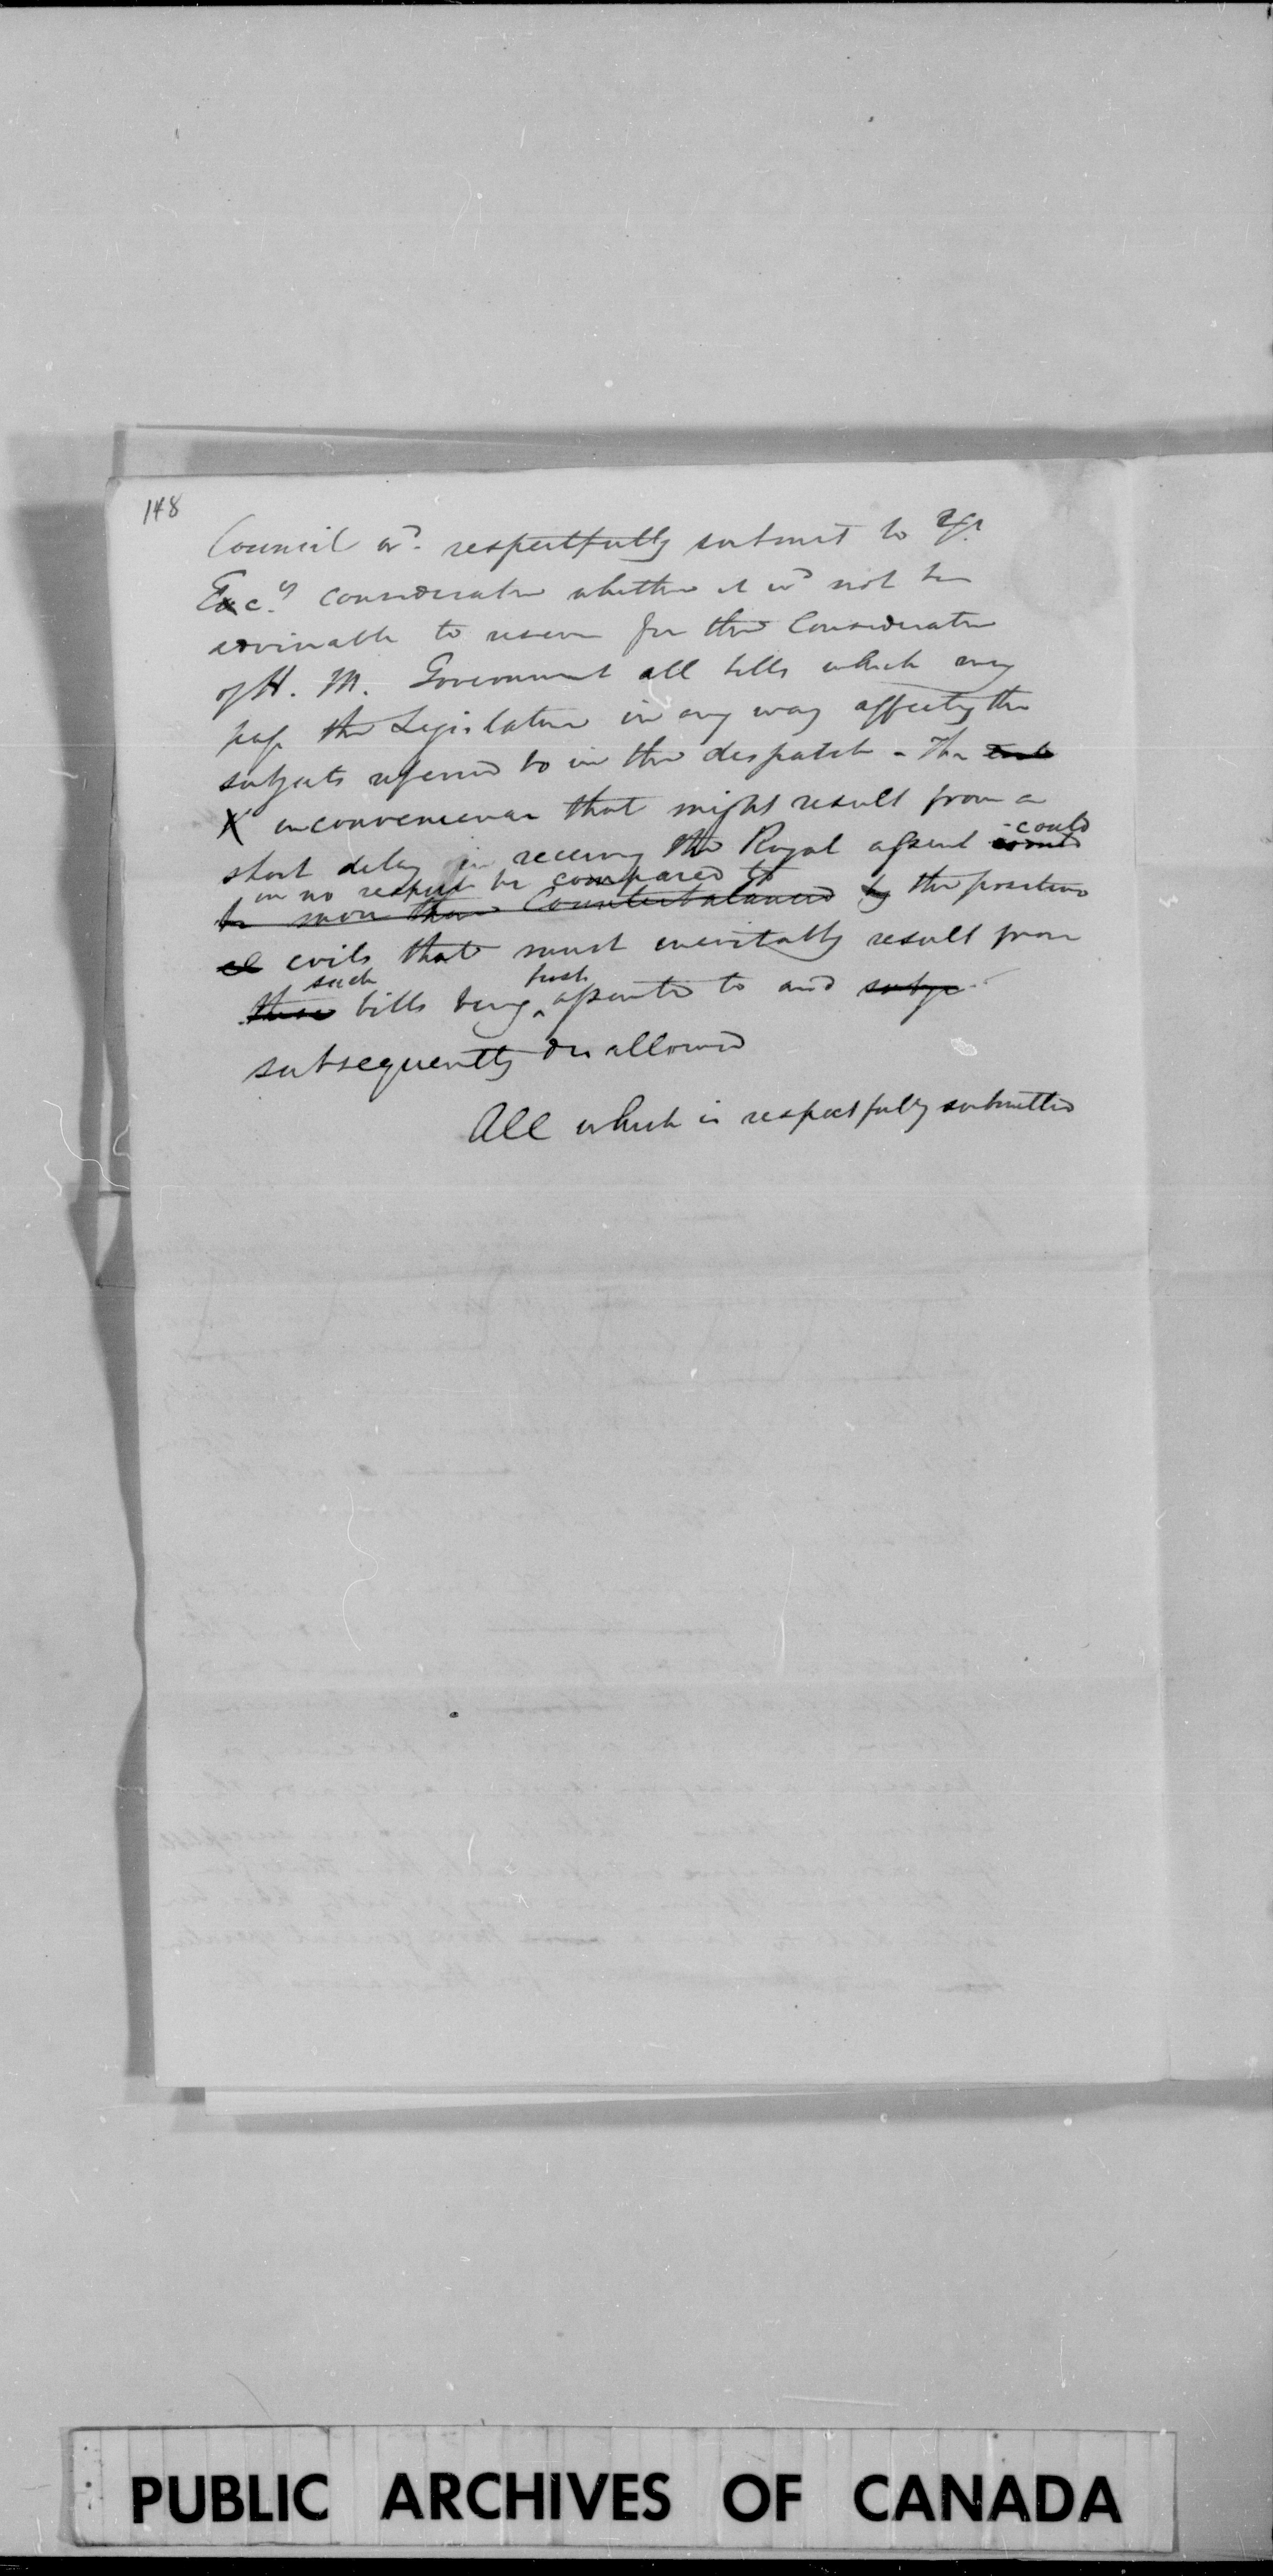 148
Council wd. respectfully submit to Yr.
Excy consideration whether it wd not be
advisable to reserve for the Consideration
of H. M. Government all bills which may
pass the Legislature in any way affecting the
subjects referred to in the despatch - The
X inconvenience that might result from a
short delay in receiving the Royal assent would could
in no respect be compared to
be more than Counterbalanced by the positive
evils that must inevitably result from
such first
these bills being ^ assented to and subse
subsequently disallowed
All which is respectfully submitted
PUBLIC ARCHIVES OF CANADA